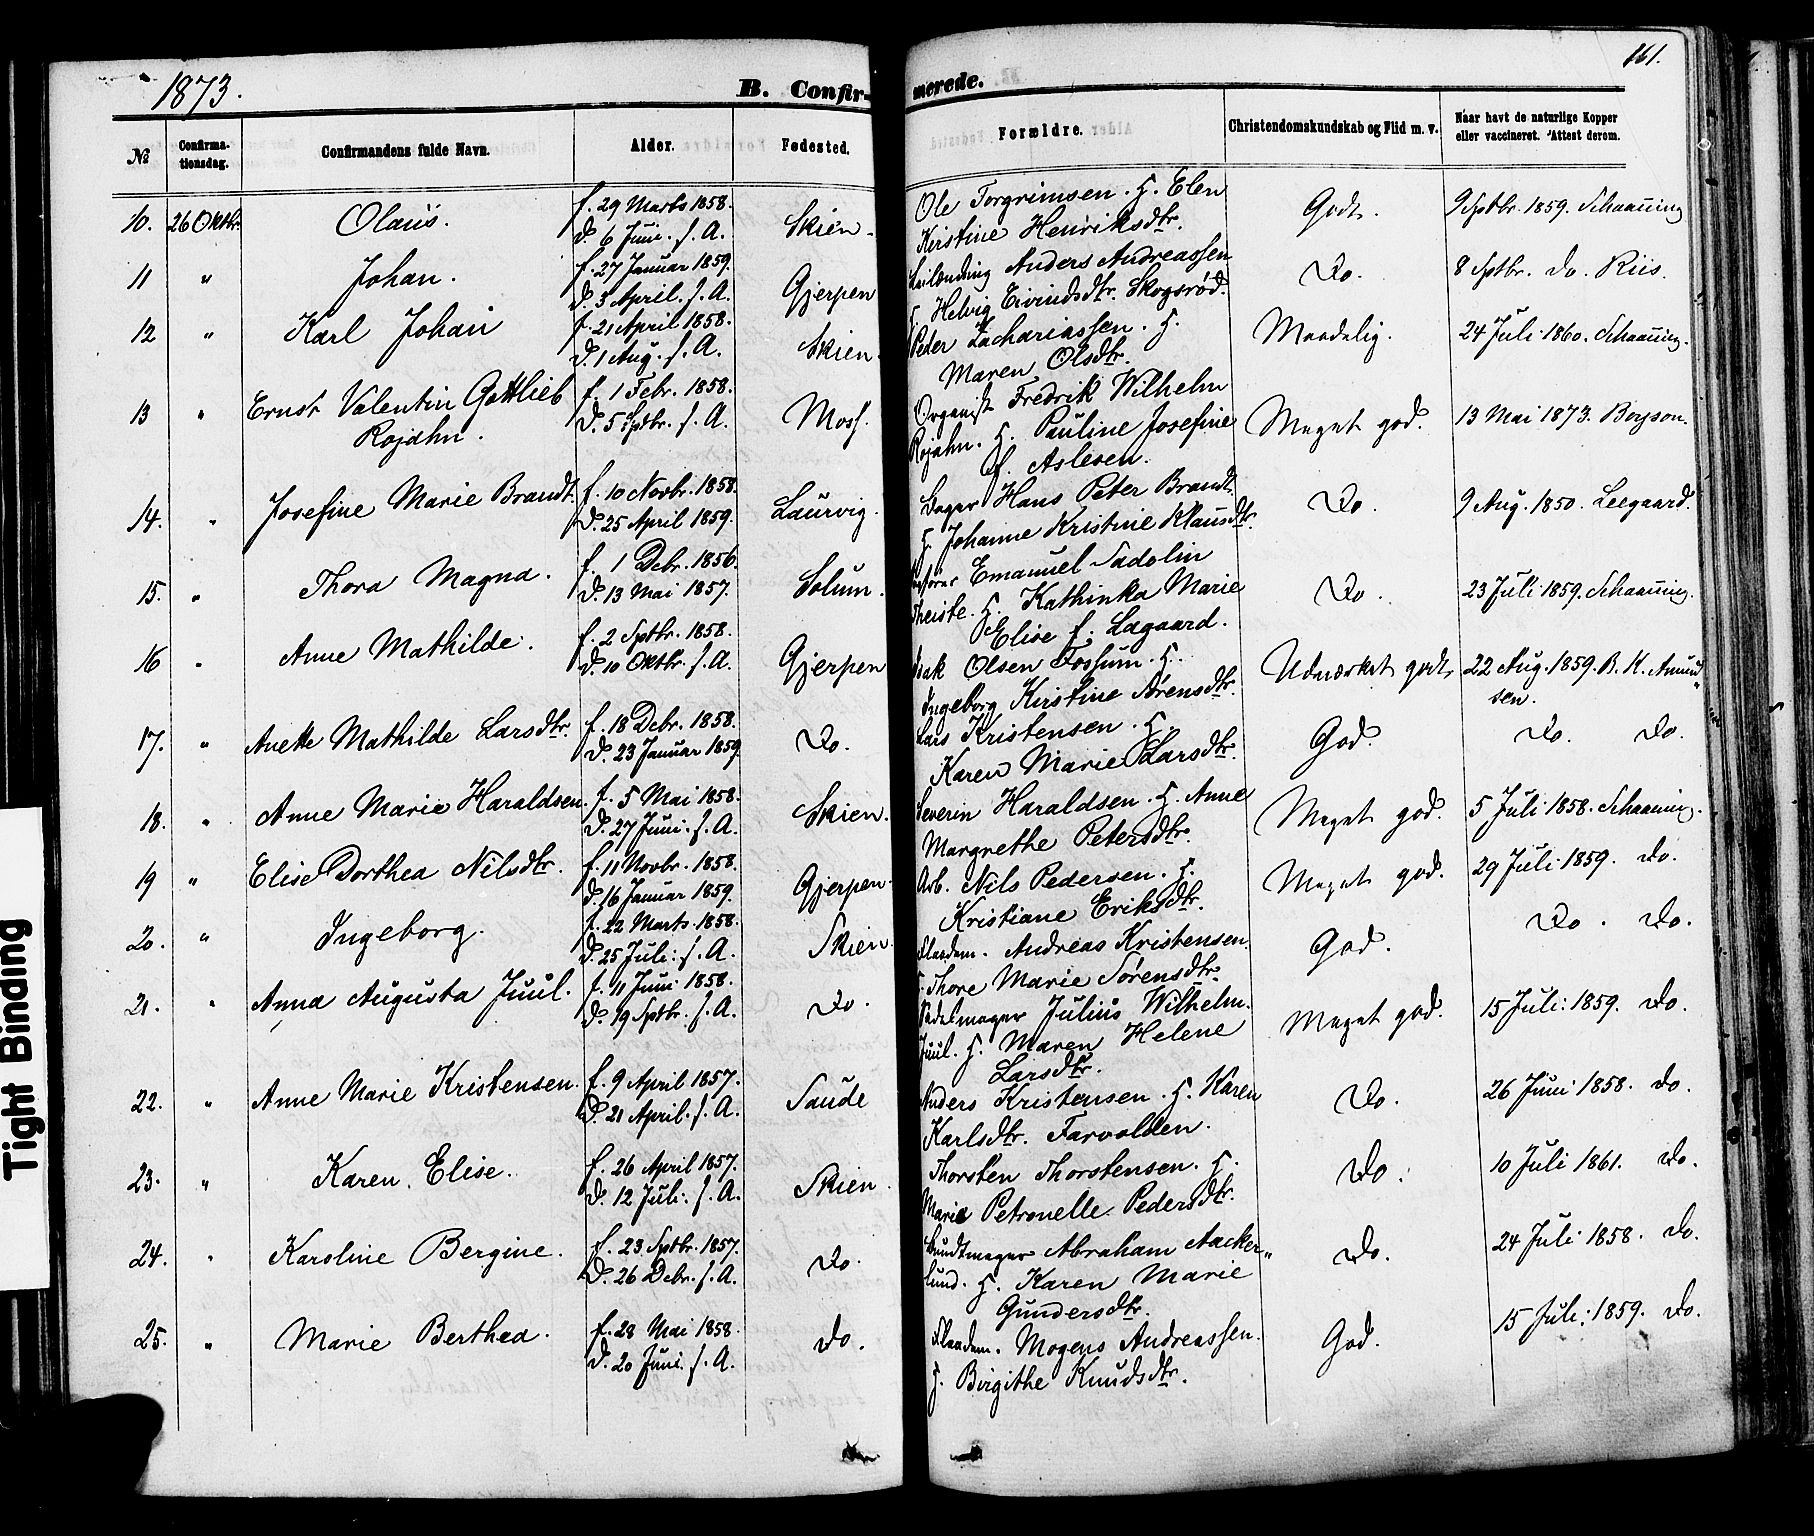 1873.
B. Confirmerede.
161.
No
Confirmationsdag.
Confirmandens fulde Navn.
Alder.
Fødested.
Forældre.
Christendomskundskab og Flid m. v.
Naar havt de naturlige Kopper eller vaccineret. Attest derom.
10. 26 Oktbr. Olaus. f. 29 Marts 1858. Skien. Ole Torgrimsen. H. Elen Godt. 9 Sptbr. 1859. Schaaning
D. 6 Juni. s. A. Kirstine Henriksdtr.
11 " Johan. f. 27 Januar 1859. Gjerpen Leilænding Anders Andreassen Do. 8 Sptbr. Do. Riis.
D. 3 April. s. A. H. Helvig Eivindsdtr. Skogsrød.
12 " Karl Johan f. 21 April 1858. Skien. Peder Zachariassen. H. Maadelig. 24 Juli 1860. Schaaning.
D. 1 Aug. s. A. Maren Olsdtr.
13 " Ernst Valentin Gottlieb f. 1 Febr. 1858. Moss. Organist Fredrik Wilhelm Meget god. 13 Mai 1873. Boyson.
Rojahn. D. 5 Sptbr. s. A. Rojahn. H. Pauline Josefine
f. Aslesen.
14. " Josefine Marie Brandt. f. 10 Novbr. 1858. Laurvig. Bager Hans Peter Brandt Do. 9 Aug. 1850. Leegaard.
D. 25 April 1859. H. Johanne Kristine Klausdtr.
15. " Thora Magna. f. 1 Debr. 1856. Solum. Emanuel Sadolin Do. 23 Juli 1859. Schaaning.
D. 13 Mai 1857. Theiste. H. Kathinka Marie
Elise f. Lagaard.
16 " Anne Mathilde. f. 2 Sptbr. 1858. Gjerpen Isak Olsen Fossum. H. Udmærket godt 22 Aug. 1859. B. K. Amund"
D. 10 Oktbr. s. A. Ingeborg Kirstine Sørensdtr. sen.
17. " Anette Mathilde Larsdtr. f. 18 Debr. 1858. Do. Lars Kristensen. H. God. Do. Do.
D. 23 Januar 1859 Karen Marie Larsdtr.
18. " Anne Marie Haraldsen. f. 5 Mai 1858. Skien. Severin Haraldsen. H. Anne Meget god. 5 Juli 1858. Schaaning.
D. 27 Juni. s. A. Margrethe Petersdtr.
19 " Elise Dorthea Nilsdtr. f. 11 Novbr. 1858. Gjerpen. Arb. Nils Pedersen. H. Meget god. 29 Juli 1859. Do.
D. 16 Januar 1859. Kristiane Eriksdtr.
20. " Ingeborg. f. 22 Marts 1858. Skien. Flaadem. Andreas Kristensen. God. Do. Do.
D. 25 Juli. s. A. H. Thore Marie Sørensdtr.
21. " Anna Augusta Juul. f. 11 Juni 1858. Do. Sadelmager Julius Wilhelm. Meget god. 15 Juli. 1859. Do.
D. 19 Sptbr. s. A. Juul. H. Maren Helene
Larsdtr.
22. " Anne Marie Kristensen. f. 9 April 1857. Saude Anders Kristensen. H. Karen Do. 26 Juni 1858. Do.
D. 21 April. s. A. Karlsdtr. Farvolden.
23. " Karen Elise. f. 26 April 1857. Skien. Thorsten Thorstensen. H. Do. 10 Juli 1861. Do.
D. 12 Juli. s. A. Marie Petronelle Pedersdtr.
24. " Karoline Bergine. f. 23 Sptbr. 1857. Do. Bundtmager Abraham Aacker" Do. 24 Juli 1858. Do.
D. 26 Debr. s. A. lund. H. Karen Marie
Gundersdtr.
25. " Marie Berthea. f. 28 Mai 1858. Do. Flaadem. Mogens Andreassen. God. 15 Juli. 1859. Do.
D. 20 Juni. s. A. H. Birgithe Knudsdtr.
Tight Binding